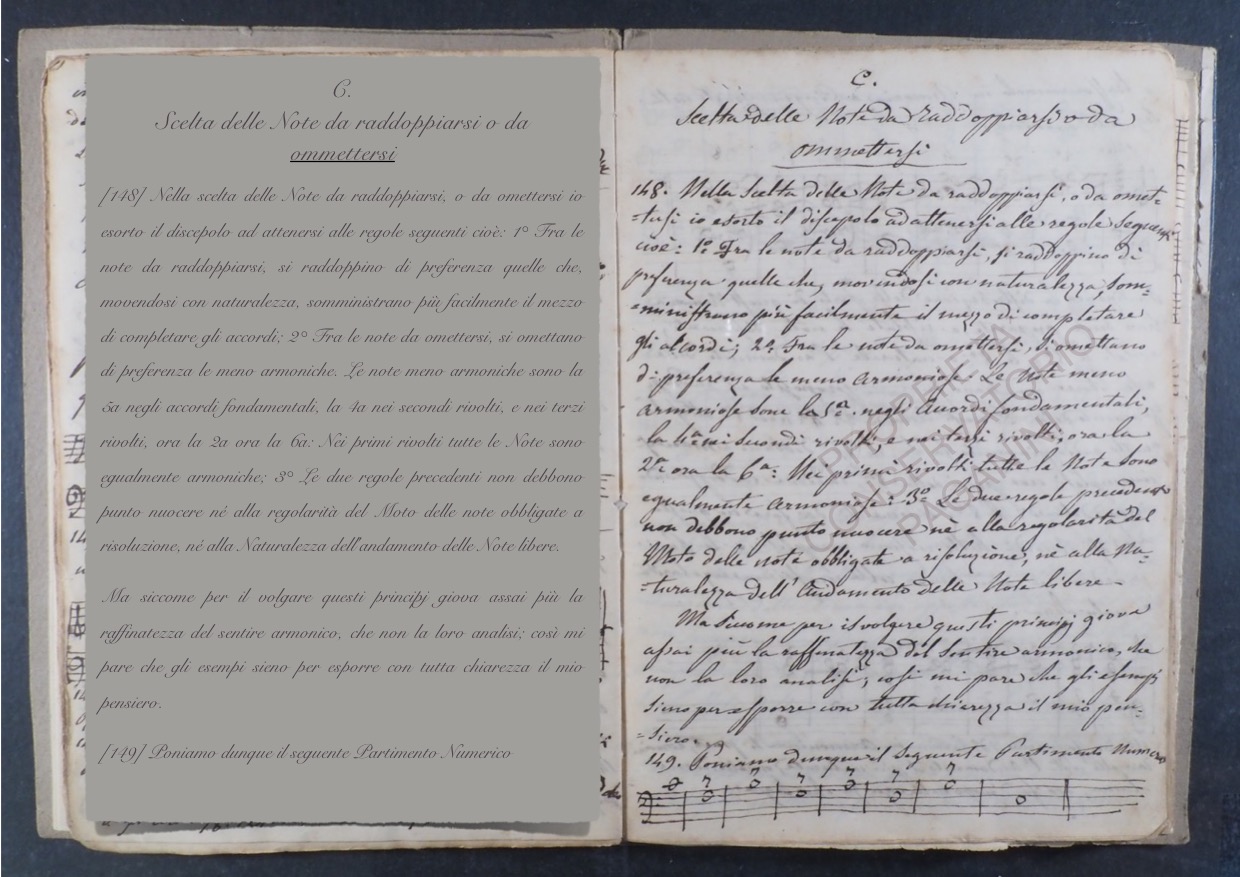 C.
Scelta delle Note da raddoppiarsi o da
ommettersi
[148] Nella scelta delle Note da raddoppiarsi, o da omettersi io
esorto il discepolo ad attenersi alle regole seguenti cioè: 1° Fra le
note da raddoppiarsi, si raddoppino di preferenza quelle che,
movendosi con naturalezza, somministrano più facilmente il mezzo
di completare gli accordi; 2° Fra le note da omettersi, si omettano
di preferenza le meno armoniche. Le note meno armoniche sono la
5a negli accordi fondamentali, la 4a nei secondi rivolti, e nei terzi
rivolti, ora la 2a ora la 6a: Nei primi rivolti tutte le Note sono
egualmente armoniche; 3° Le due regole precedenti non debbono
punto nuocere né alla regolarità del Moto delle note obbligate a
risoluzione, né alla Naturalezza dell'andamento delle Note libere.
Ma siccome per il volgare questi principj giova assai più la
raffinatezza del sentire armonico, che non la loro analisi; così mi
pare che gli esempi sieno per esporre con tutta chiarezza il mio
pensiero.
[149] Poniamo dunque il seguente Partimento Numerico
C.
Scelta delle Note da raddoppiarsi o da
ommettersi
148. Nella scelta delle Note da raddoppiarsi, o da omet=
=tersi io esorto il discepolo ad attenersi alle regole seguenti
cioè: 1° Fra le note da raddoppiarsi, si raddoppino di
preferenza quelle che, movendosi con naturalezza, som=
=ministrano più facilmente il mezzo di completare
gli accordi; 2° Fra le note da omettersi, si omettano
di preferenza le meno armoniose. Le Note meno
armoniose sono la 5a. negli Accordi fondamentali,
la 4a nei secondi rivolti, e nei terzi rivolti, ora la
2a ora la 6a: Nei primi rivolti tutte le Note sono
egualmente armoniose: 3° Le due regole precedenti
non debbono punto nuocere nè alla regolarità del
Moto delle note obbligate a risoluzione, nè alla Na=
=turalezza dell'Andamento delle Note libere.
Ma siccome per isvolgere questi principj giova
assai più la raffinatezza del sentire armonico, che
non la loro analisi; così mi pare che gli esempj
sieno per esporre con tutta chiarezza il mio pen=
=siero.
149. Poniamo dunque il seguente Partimento Numerico
7 7 7 7 7 7
PROPRIETÀ
CONSERVATORIO
PAGANINI